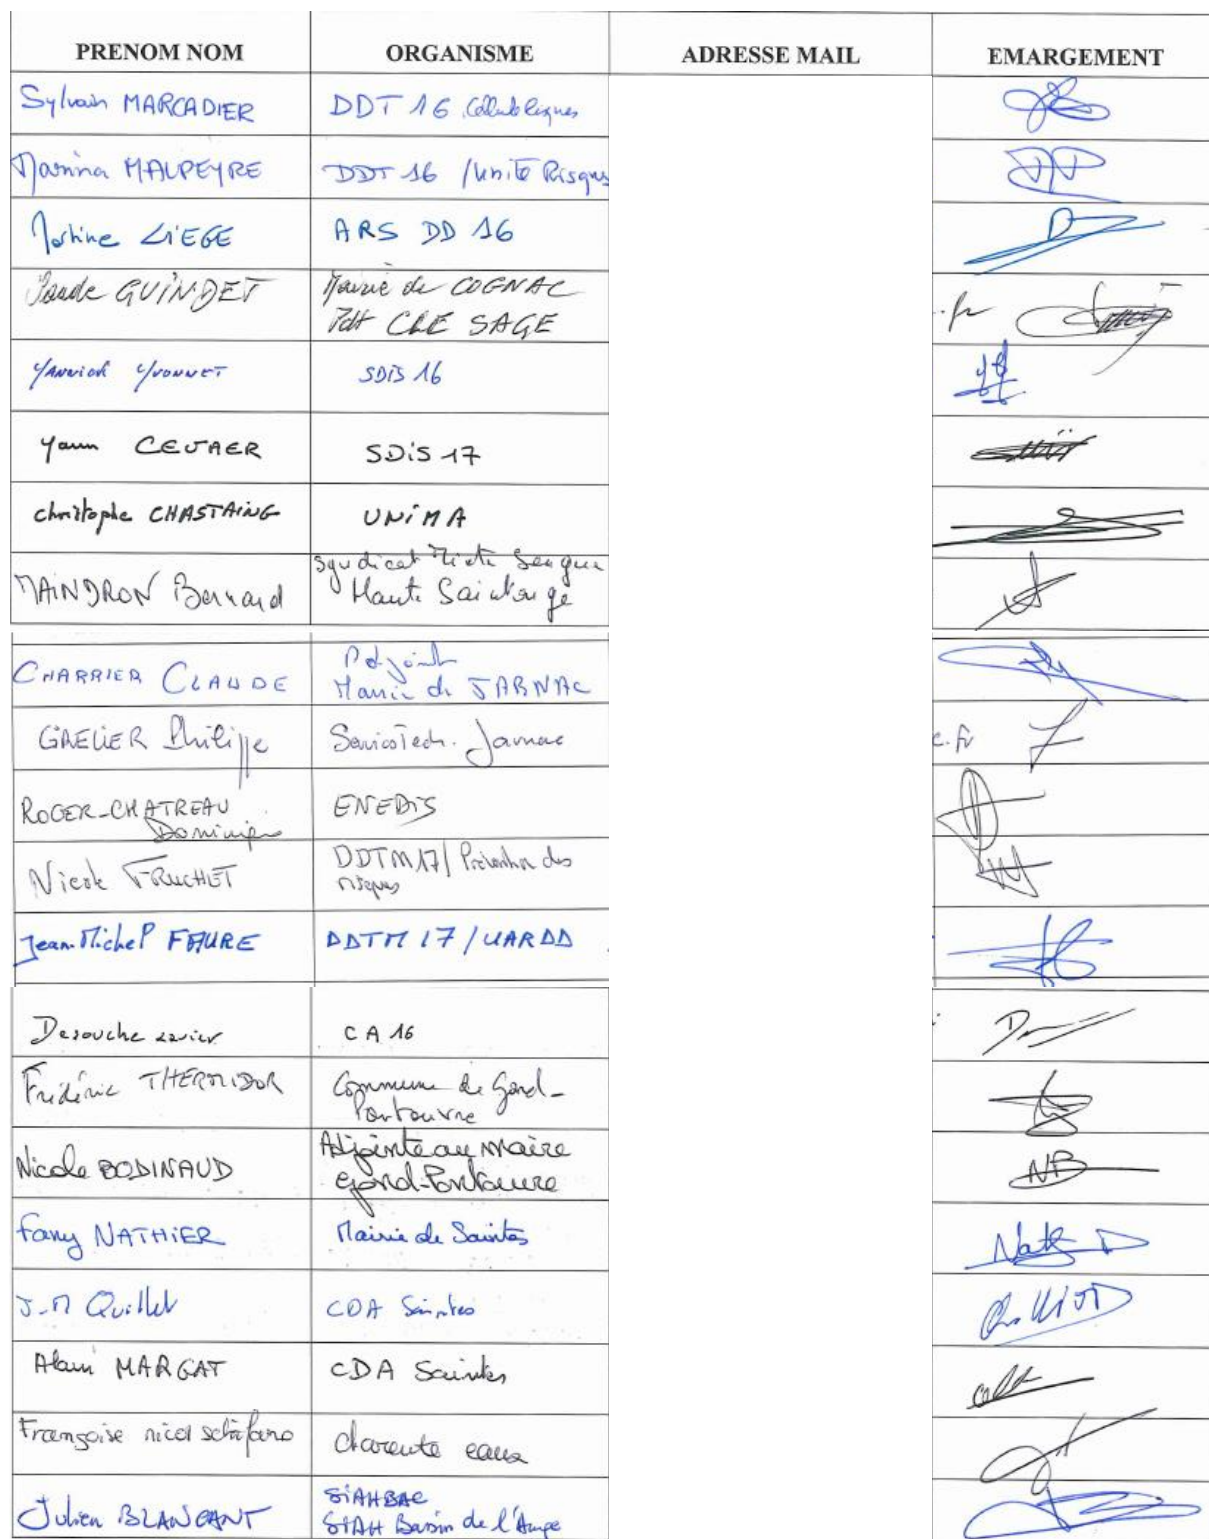 PRENOM NOM ORGANISME ADRESSE MAIL EMARGEMENT
Sylvain MARCADIER DDT 16
Marina MAUPEYRE DDT 16 /Unité Risques
LIEGE ARS DD 16
GUINDET Mairie de COGNAC
Pdt CLE SAGE
.fr
Yannick YVONNET SDIS 16
Yann CEVAER SDiS 17
christophe CHASTAING UNIMA
MAINDRON Bernard Syndicat Mixte Seugne
Haute Saintonge
CHARRIER CLAUDE
Mairie de JARNAC
GRELIER Philippe Jarnac
e.fr
ROGER-CHATREAU ENEDIS
Dominique
Nicole FRUCHET DDTM17/ Prévention des
risques
Jean-Michel FAURE DDTM 17/UARDD
Desouche xavier CA 16
Frédéric THERMIDOR Commune de Gond-
Pontouvre
Nicole BODINAUD Adjointe au maire
Gond-Pontouvre NB
Fany NATHIER Mairie de Saintes
J-M Quillet CDA Saintes
Alain MARGAT CDA Saintes
Françoise nicol charente eaux
Julien BLANCANT SIAHBAC
SIAH Bassin de l'Auge